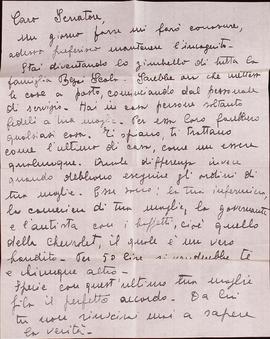 Caro Senatore,
Un giorno forse mi farò conoscere,
adesso preferisco mantenere l'incognito.
Stai diventando lo zimbello di tutta la
famiglia Bessi Scola - Sarebbe ora che mettessi
le cose a posto, cominciando dal personale
di servizio. Hai in casa persone soltanto
fedeli a tua moglie. Per essa loro farebbero
qualsiasi cosa. Ti spiano, ti trattano
come l'ultimo di casa, come un essere
qualunque. Quale differenza invece
quando debbono eseguire gli ordini di
tua moglie. Essi sono: la tua infermiera
la cameriera di tua moglie, la governante
e l'autista con i baffetti, cioè quello
della Chevrolet, il quale è un vero
bandito - Per 50 lire si venderebbe te
e chiunque altro -
Specie con quest'ultimo tua moglie
fila il perfetto accordo. Da lui
tu non riuscirai mai a sapere
la verità -